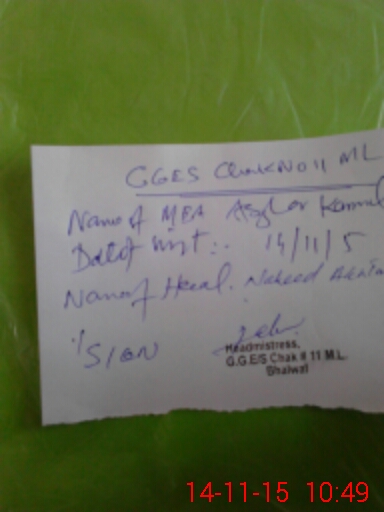 GGES Chak No 11 ML
Name of MEA Asghar
Date of Visit :. 14/11/5
Name of Head. Naheed
SIGN
Headmistress,
G.G.E/S Chak # 11 M.L.
Bhalwal
14-11-15 10:49